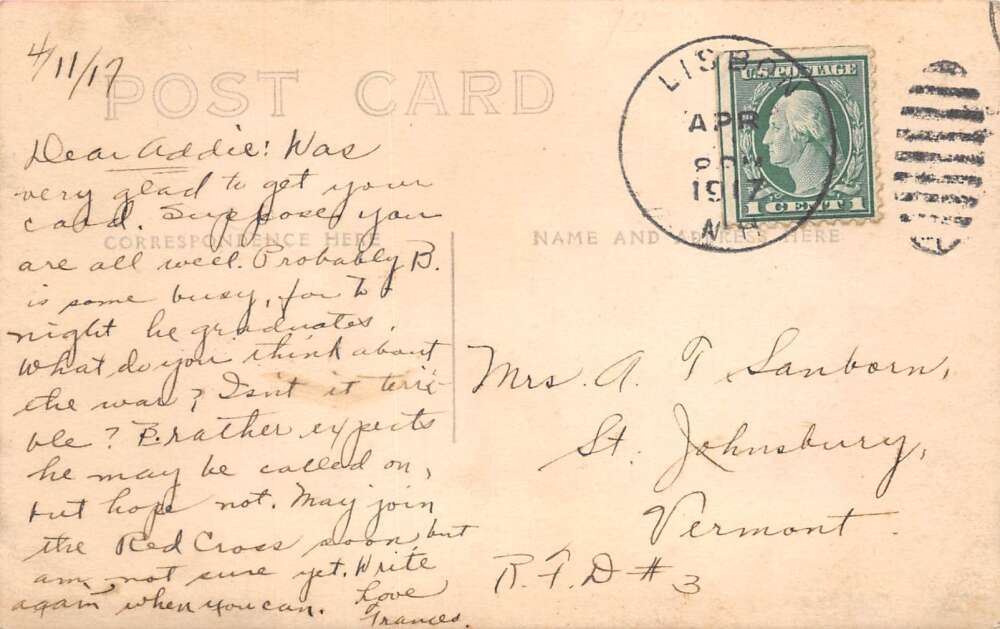 4/11/17
POST CARD
Dear Addie! Was
very glad to get your
card. Suppose you
CORRESPONDENCE HERE
are all well. Probably B.
is some busy, for to
night he graduates.
What do you think about
the war? Isn't it terri-
ble? B. rather expects
he may be called on,
but hope not. May join
the Red Cross soon but
am not sure yet. Write
again when you can. Love
Frances.
LISBON
APR
1917
N.H.
U.S. POSTAGE
1 CENT 1
NAME AND ADDRESS HERE
Mrs. A. T. Sanborn,
St. Johnsbury,
Vermont.
R.F.D # 3